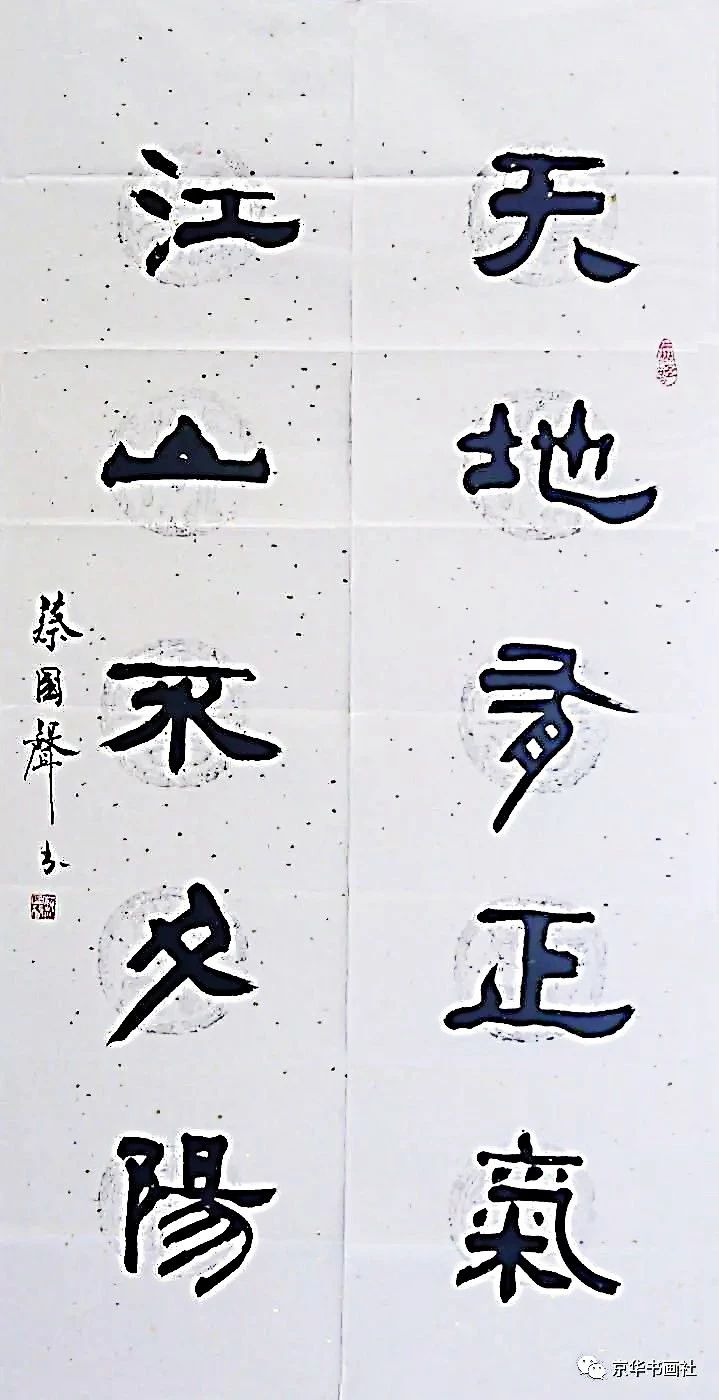 天地有正氣
江山不夕陽
蔡國聲书
京华书画社